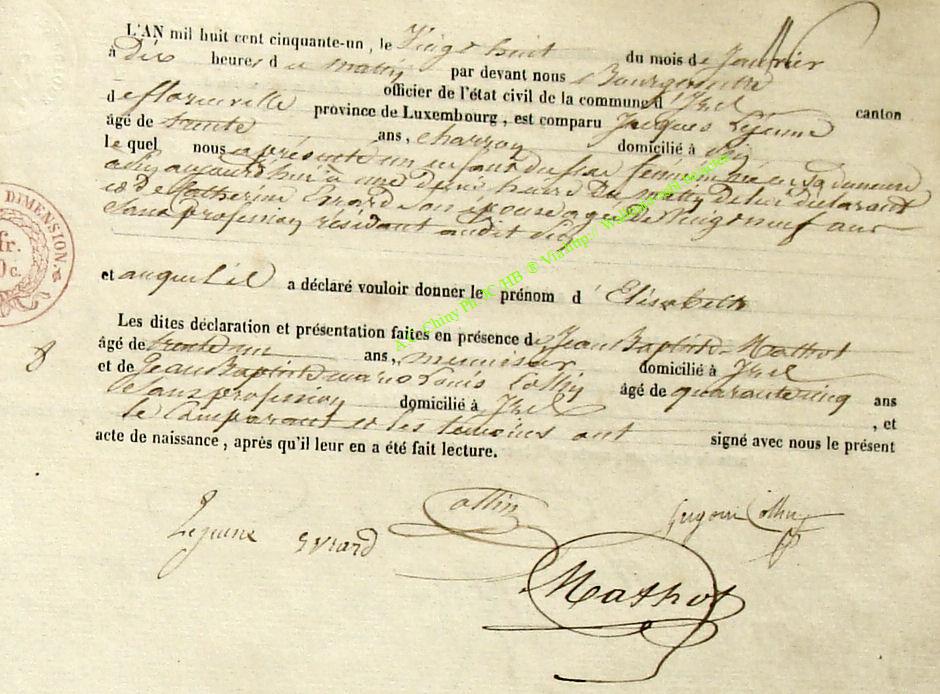 L'AN mil huit cent cinquante-un, le Vingt huit du mois de Janvier
à Dix heures du matin par devant nous Bourgmestre
officier de l'état civil de la commune d'Izel canton
de florenville province de Luxembourg, est comparu Jacques Lejeune
âgé de trente ans, charron domicilié à Izel
le quel nous a présenté un enfant du sexe féminin née en sa demeure
aujourd'hui à une demie heure du matin de lui déclarant
et de Catherine Evrard son épouse agée de Vingt neuf ans
Sans profession résidant audit Izel
et auquel il a déclaré vouloir donner le prénom d'Elisabeth
Les dites déclaration et présentation faites en présence de Jean Baptiste Mathot
âgé de trente un ans, menuisier domicilié à Izel
et de Jean Baptiste marie Louis Collin âgé de quarante cinq ans
Sans profession domicilié à Izel, et
le Comparant et les temoins ont signé avec nous le présent
acte de naissance, après qu'il leur en a été fait lecture.
Lejeune Evrard Collin Collin
Mathot
DIMENSION
fr.
0c.